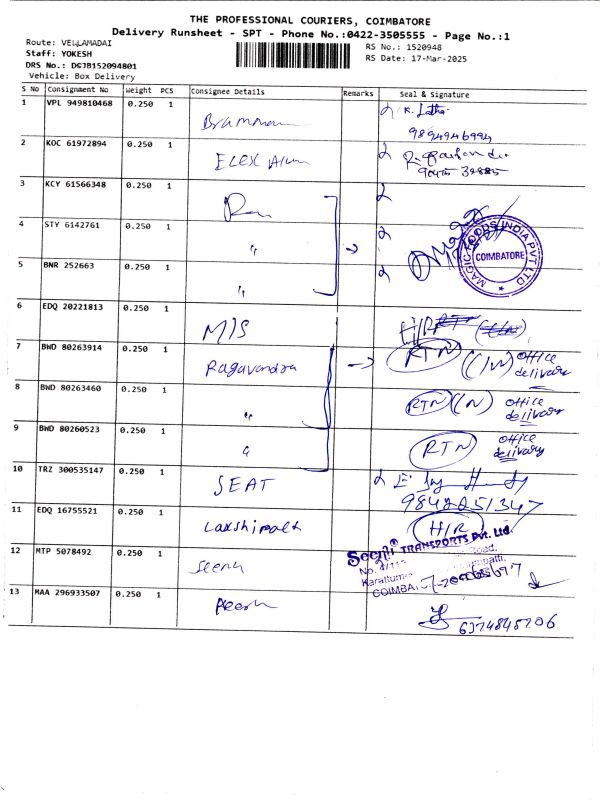 THE PROFESSIONAL COURIERS, COIMBATORE
Delivery Runsheet - SPT - Phone No.:0422-3505555 - Page No.:1
Route: VELLAMADAI
RS No.: 1520948
Staff: YOKESH
RS Date: 17-Mar-2025
DRS No.: DGJB152094801
Vehicle: Box Delivery
S No Consignment No Weight PCS Consignee Details Remarks Seal & Signature
1 VPL 949810468 0.250 1 K. Latha
9894946994
2 KOC 61972894 0.250 1
3 KCY 61566348 0.250 1
4 STY 6142761 0.250 1 "
MAGIC FOODS INDIA PVT LTD
COIMBATORE
5 BNR 252663 0.250 1 "
6 EDQ 20221813 0.250 1 M/S
7 BWD 80263914 0.250 1 Ragavandra RTN office
delivary
8 BWD 80263460 0.250 1 " RTN (N) office
delivary
9 BWD 80260523 0.250 1 " RTN office
delivary
10 TRZ 300535147 0.250 1 SEAT
9842251347
11 EDQ 16755521 0.250 1 H/R
12 MTP 5078492 0.250 1 Seenu
TRANSPORTS Pvt. Ltd.
13 MAA 296933507 0.250 1
6374845706